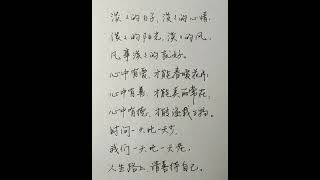 淡淡的日子,淡淡的心情,
淡淡的阳光,淡淡的风,
凡事淡淡的就好。
心中有爱,才能春暖花开,
心中有善,才能美丽常在,
心中有德,才能承载万物。
时间一天比一天少,
我们一天比一天老,
人生路上,请善待自己。